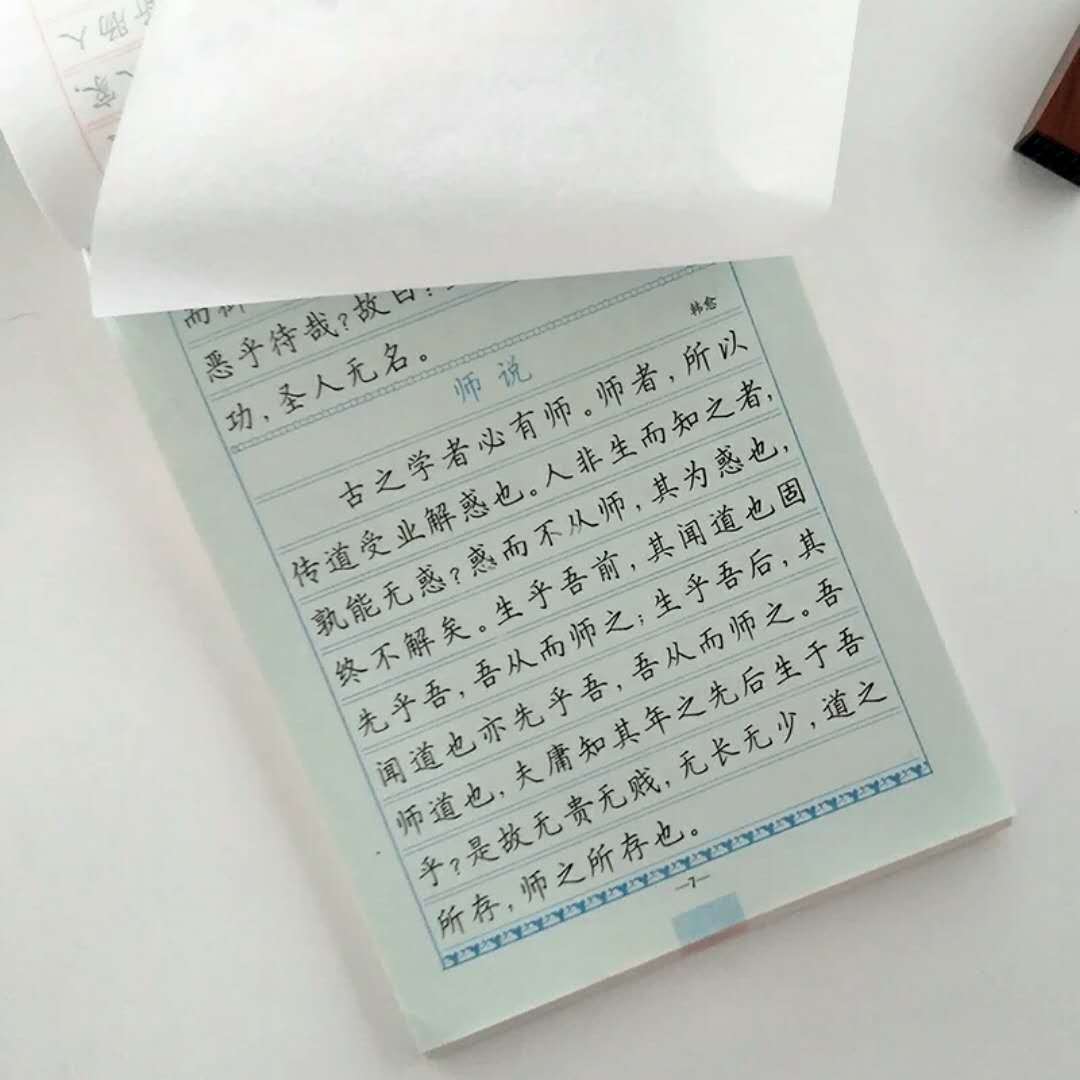 肠人
家
恶乎待哉？故曰：
功，圣人无名。
师说
韩愈
古之学者必有师。师者，所以
传道受业解惑也。人非生而知之者，
孰能无惑？惑而不从师，其为惑也，
终不解矣。生乎吾前，其闻道也固
先乎吾，吾从而师之；生乎吾后，其
闻道也亦先乎吾，吾从而师之。吾
师道也，夫庸知其年之先后生于吾
乎？是故无贵无贱，无长无少，道之
所存，师之所存也。
—7—